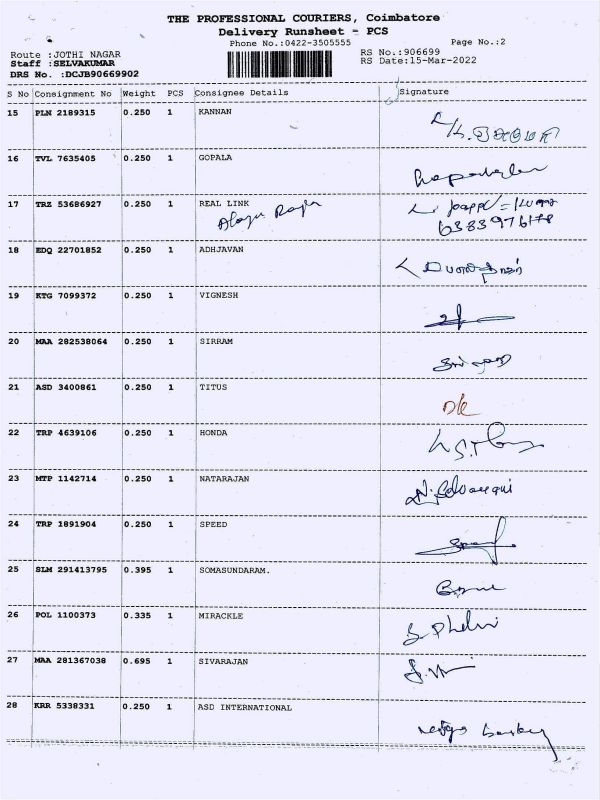 THE PROFESSIONAL COURIERS, Coimbatore
Delivery Runsheet - PCS
Phone No.:0422-3505555
Page No.:2
Route :JOTHI NAGAR
Staff :SELVAKUMAR
DRS No. :DCJB90669902
RS No.:906699
RS Date:15-Mar-2022
S No Consignment No Weight PCS Consignee Details Signature
15 PLN 2189315 0.250 1 KANNAN
16 TVL 7635405 0.250 1 GOPALA
17 TRZ 53686927 0.250 1 REAL LINK
Alagu Raja
18 EDQ 22701852 0.250 1 ADHJAVAN
19 KTG 7099372 0.250 1 VIGNESH
20 MAA 282538064 0.250 1 SIRRAM
21 ASD 3400861 0.250 1 TITUS
22 TRP 4639106 0.250 1 HONDA
23 MTP 1142714 0.250 1 NATARAJAN
24 TRP 1891904 0.250 1 SPEED
25 SLM 291413795 0.395 1 SOMASUNDARAM.
26 POL 1100373 0.335 1 MIRACKLE
27 MAA 281367038 0.695 1 SIVARAJAN
28 KRR 5338331 0.250 1 ASD INTERNATIONAL